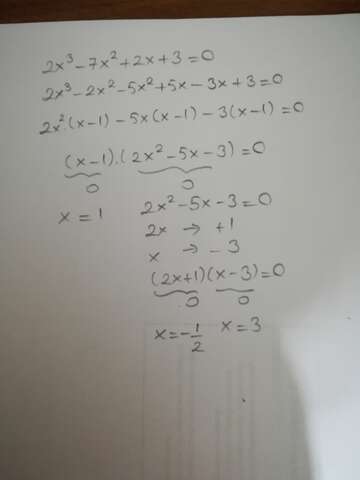 2x³-7x²+2x+3=0
2x³-2x²-5x²+5x-3x+3=0
2x².(x-1)-5x(x-1)-3(x-1)=0
(x-1).(2x²-5x-3)=0
0 0
x=1 2x²-5x-3=0
2x → +1
x → -3
(2x+1)(x-3)=0
0 0
x=-1/2 x=3